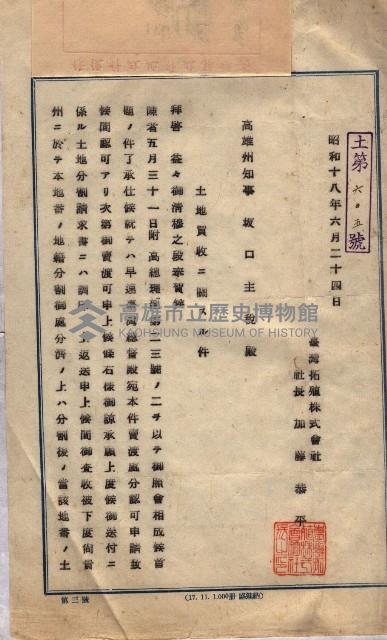 土第六〇五號
昭和十八年六月二十四日
臺灣拓殖株式會社
社長 加藤恭平
高雄州知事 坂口主税殿
土地買收ニ關スル件
拜啓 益々御清穆之段奉賀候
陳者五月三十一日附高總理 第一三號ノ二ヲ以テ御照會相成候首
題ノ件了承仕候就テハ早速臺灣總督殿宛本件賣渡處分認可申請致
候間認可アリ次第御賣渡可申上候條右樣御諒承願上度候御送付ニ
係ル土地分割請求書ニハ調印ノ上返送申上候間御査收被下度尚貴
州ニ於テ本地番ノ地籍分割御處分濟ノ上ハ分割後ノ當該地番ノ土
高雄市立歷史博物館
KAOHSIUNG MUSEUM OF HISTORY
第三號
(17. 11. 1.000冊 納)